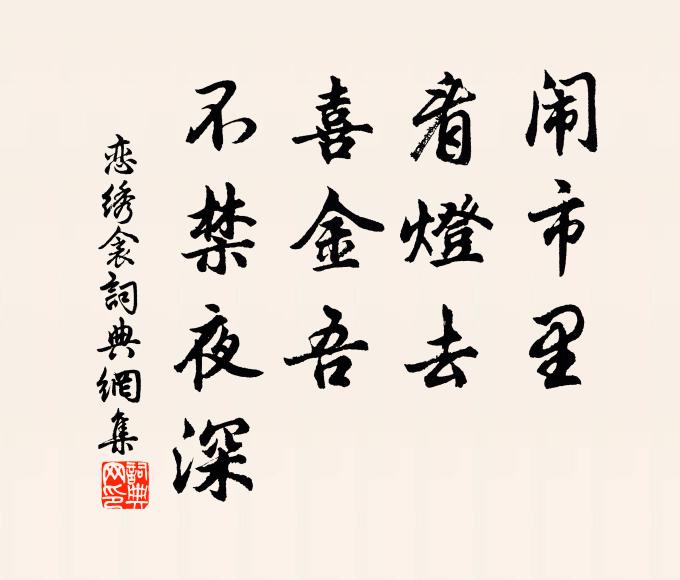 闹市里
看燈去
喜金吾
不禁夜深
恋绣衾詞典網集
詞典网印